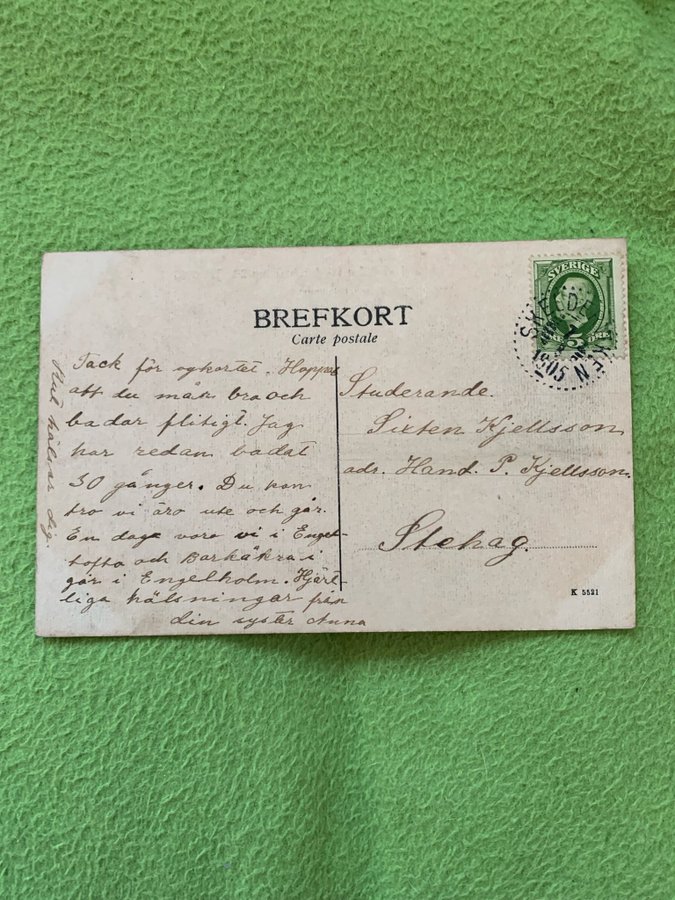 SVERIGE
5 ÖRE
1905
BREFKORT
Carte postale
Tack för vykortet. Hoppas
att du mår bra och
badar flitigt. Jag
har redan badat
30 gånger. Du kan
tro vi äro ute och går.
En dage voro vi i Engel-
tofta och Barkåkra i
går i Engelholm. Hjärt-
liga hälsningar från
din syster Anna
hälsar dig.
Studerande.
Sixten Kjellsson
adr. Hand. P. Kjellsson.
Stehag.
K 5521